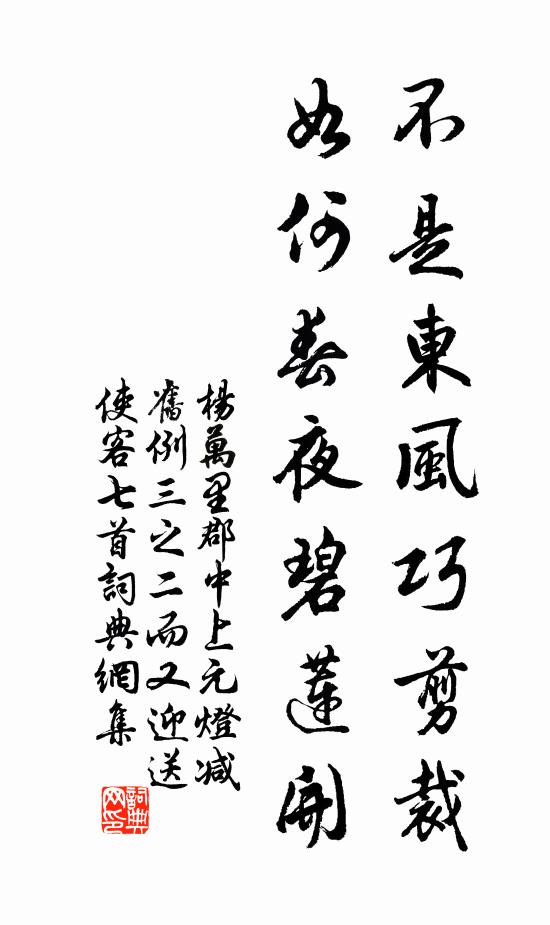 不是東風巧剪裁
如何春夜碧蓮開
楊萬里郡中上元燈減
舊例三之二而又迎送
使客七首詞典網集
詞典网印